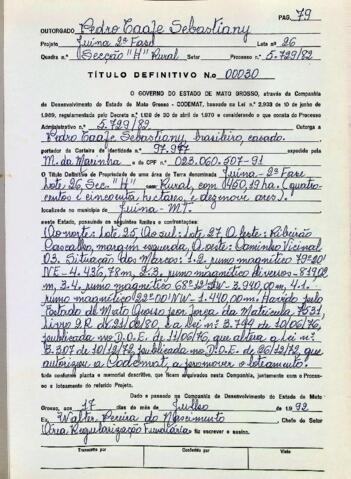 PAG. 79
OUTORGADO Pedro Taaje Sebastiany
Projeto Juina 2ª Fase Lote nº 26
Quadra nº Secção "H" Rural Setor Processo nº 5.729/82
TÍTULO DEFINITIVO N.o 00030
O GOVERNO DO ESTADO DE MATO GROSSO, através da Companhia
de Desenvolvimento do Estado de Mato Grosso - CODEMAT, com base na Lei nº 2.933 de 10 de junho de
1.969, regulamentada pelo Decreto n.º 1.128 de 30 de abril de 1970 e considerando o que consta do Processo
Administrativo n.º 5.729/82. Outorga a
Pedro Taaje Sebastiany, brasileiro, casado.
portador da Carteira de Identidade n.º 97.997 expedida pela
M. da Marinha e do CPF n.º 023.060.507-91
O Título Definitivo de Propriedade de uma área de Terra denominada Juina - 2ª Fase
Lote 26, Sec. "H" Rural, com 0450,19 ha. (quatro-
centos e cincoenta hectares, e dezenove ares).
localizada no município de Juina - MT.
neste Estado, possuindo os seguintes limites e confrontações:
Ao norte: Lote 25, Ao sul: Lote 27, A leste: Ribeirão
Cascalho, margem esquerda, A oeste: Caminho Vicinal
03. Situação dos Marcos: 1.2. rumo magnético 79º20'
NE - 4.436,78m, 2.3. rumo magnético diversos - 819,02
m, 3.4. rumo magnético 68º12'SW - 3.940,00m, 4.1.
rumo magnético 22º00'NW - 1.440,00m. Havido pelo
Estado de Mato Grosso por força da Matrícula 7531
Livro 2R de 21/08/80 e a lei nº 3.744 de 10/06/76,
publicada no D.O.E. de 11/06/76, que altera a lei nº
3.307 de 10/12/72, publicada no D.O.E. de 26/12/72, que
autorizou a Codemat, a promover o loteamento.
tudo conforme planta e memorial descritivo, que ficam arquivados nesta Companhia, juntamente com o Proces-
so e loteamento do referido Projeto.
Dado e passado na Companhia de Desenvolvimento do Estado de Mato
Grosso, aos 17 dias do mês de Julho 1.992
Eu Walter Pereira do Nascimento Chefe do Setor
Área Regularização Fundiária fiz escrever e assino.
Transcrito por Conferido por Visto